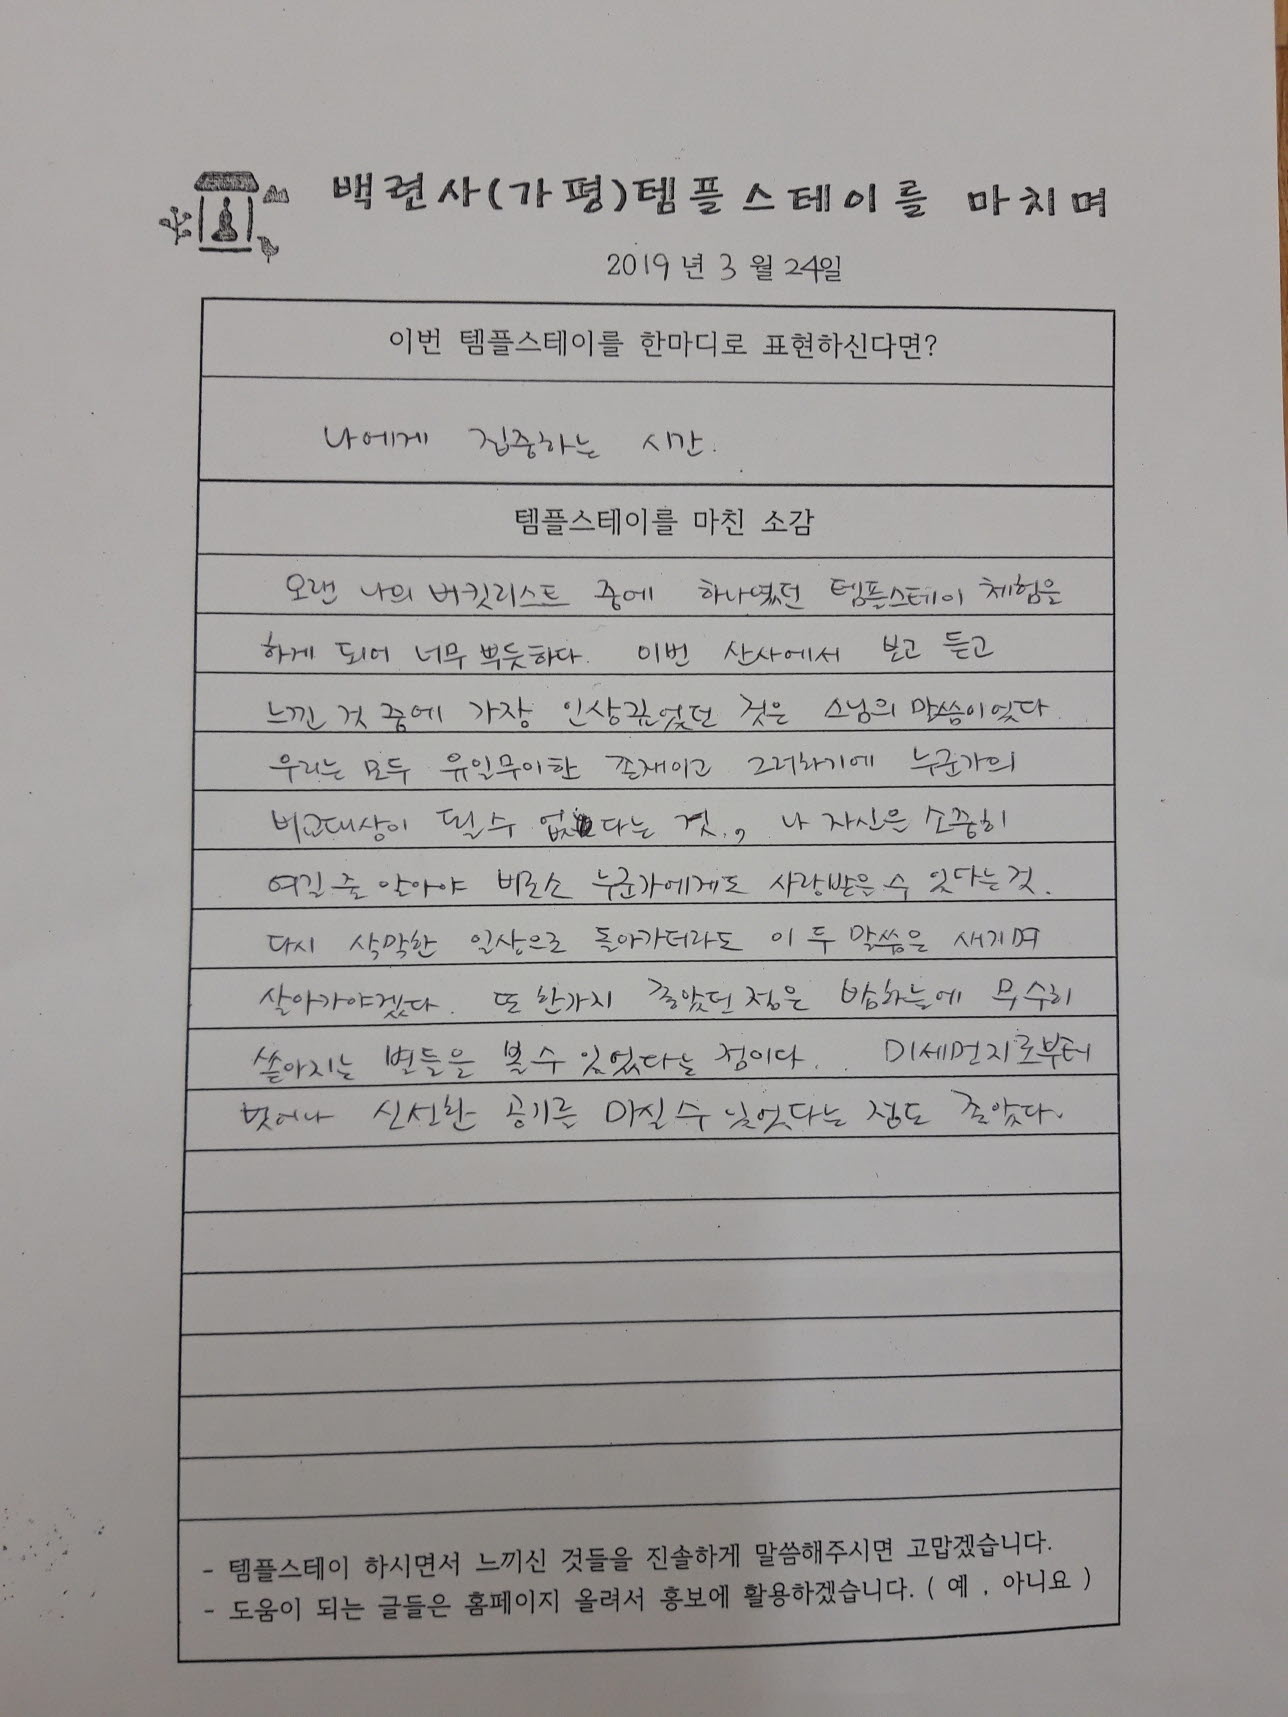 백련사(가평)템플스테이를 마치며
2019년 3월 24일
이번 템플스테이를 한마디로 표현하신다면?
나에게 집중하는 시간.
템플스테이를 마친 소감
오랜 나의 버킷리스트 중에 하나였던 템플스테이 체험을
하게 되어 너무 뿌듯하다. 이번 산사에서 보고 듣고
느낀 것 중에 가장 인상깊었던 것은 스님의 말씀이었다
우리는 모두 유일무이한 존재이고 그러하기에 누군가의
비교대상이 될 수 없다는 것., 나 자신은 소중히
여길 줄 알아야 비로소 누군가에게도 사랑받을 수 있다는 것.
다시 삭막한 일상으로 돌아가더라도 이 두 말씀은 새기며
살아가야겠다. 또 한가지 좋았던 점은 밤하늘에 무수히
쏟아지는 별들을 볼 수 있었다는 점이다. 미세먼지로부터
벗어나 신선한 공기를 마실 수 있었다는 점도 좋았다.
- 템플스테이 하시면서 느끼신 것들을 진솔하게 말씀해주시면 고맙겠습니다.
- 도움이 되는 글들은 홈페이지 올려서 홍보에 활용하겠습니다. ( 예 , 아니요 )